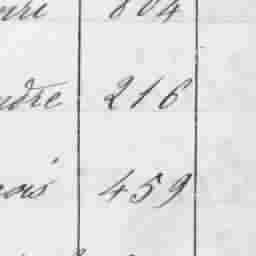 804
dre 216
ois 459